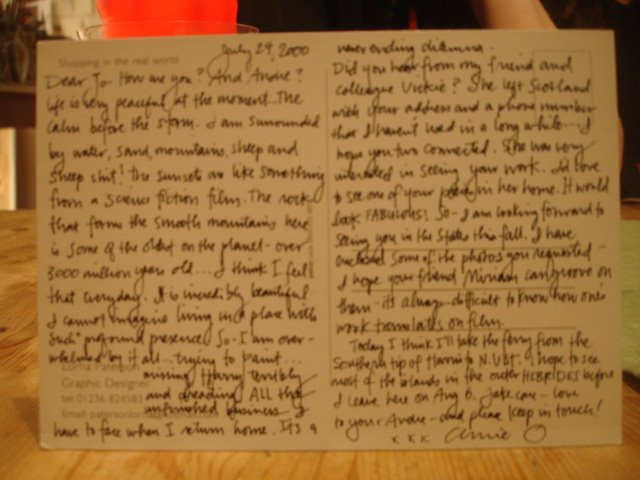 Shopping in the real world
July 29, 2000
Dear Jo- How are you? And Andre?
Life is very peaceful at the moment..The
calm before the storm. I am surrounded
by water, sand, mountains, sheep and
sheep shit! The sunsets are like something
from a science fiction film. The rock
that forms the smooth mountains here
is some of the oldest on the planet - over
3000 million years old... I think I feel
that everyday. It is incredibly beautiful.
I cannot imagine living in a place with
such profound presence. So - I am over-
whelmed by it all... trying to paint...
Lorna Paterson
missing Harry terribly
Graphic Designer
and dreading ALL the
tel: 01236 824583
unfinished business I
Email: paterson
have to face when I return home. It's a
never ending dilemma.
Did you hear from my friend and
colleague Vickie? She left Scotland
with your address and a phone number
that I haven't used in a long while... I
hope you two connected. She was very
interested in seeing your work. I'd love
to see one of your in her home. It would
look FABULOUS! So - I am looking forward to
seeing you in the States this fall. I have
enclosed some of the photos you requested -
I hope your friend Miriam can groove on
them - it's always difficult to know how one's
work translates on film.
Today I think I'll take the ferry from the
Southern tip of Harris to N. Uist. I hope to see
most of the islands in the outer HEBRIDES before
I leave here on Aug 6. Take care - love
to your Andre - and please keep in touch!
x x x Annie O